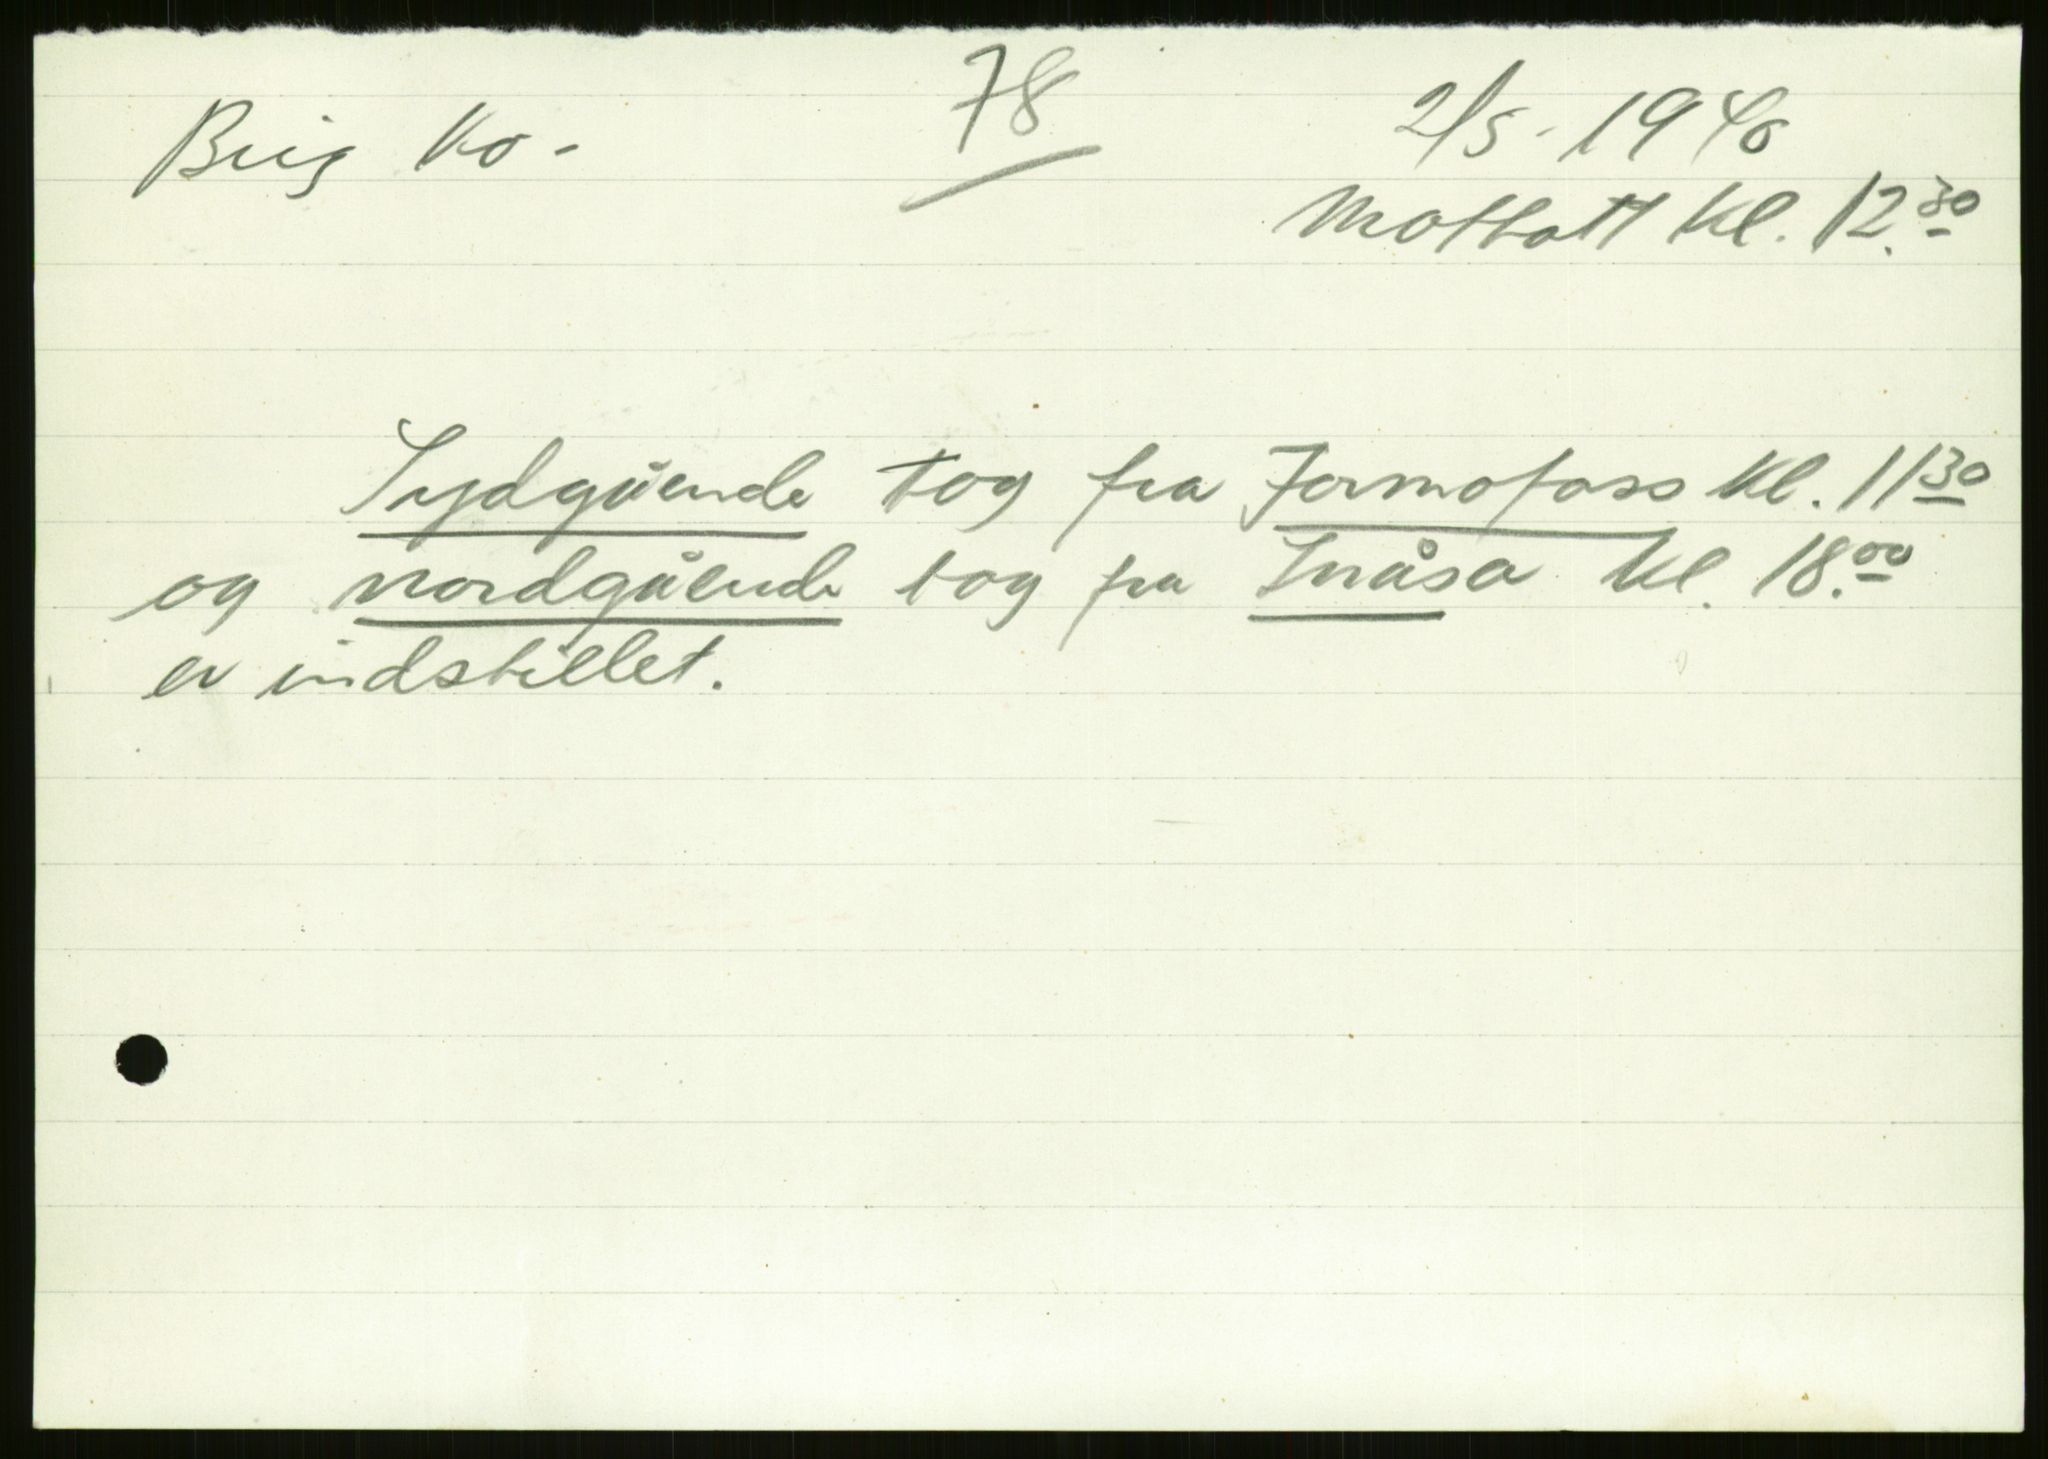 78
Brig Ko-
2/5-1940
Mottatt kl. 12.30
Sydgående tog fra Formofoss kl. 11 30
og nordgående tog fra Snåsa kl. 18.00
er indstillet.